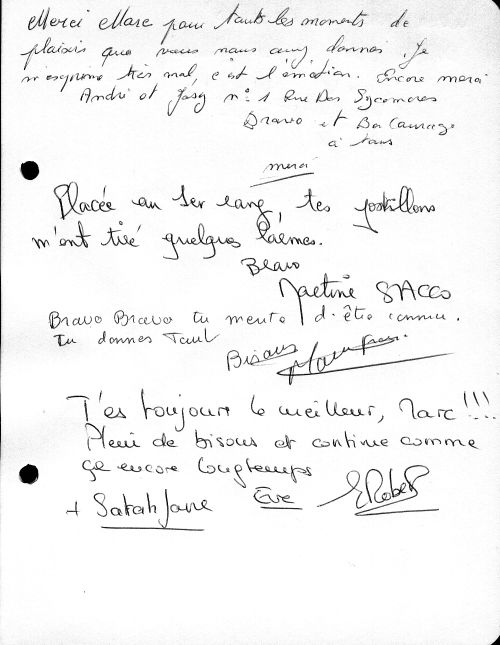 Merci Marc pour tout les moments de
plaisir que vous nous avez donnés. Je
m'exprime très mal, c'est l'émotion. Encore merci
André et Josy n° 1 Rue Des Sycomores
Bravo et Bon Courage
à tous
merci
Placée au 1er rang, tes postillons
m'ont tiré quelques larmes.
Bravo
Martine SACCO
Bravo Bravo tu merite d'être connu.
Tu donnes Tant
Bisous
T'es toujours le meilleur, Marc !!!
Plein de bisous et continue comme
ça encore longtemps
+ Sarah Jane Eve E Robert